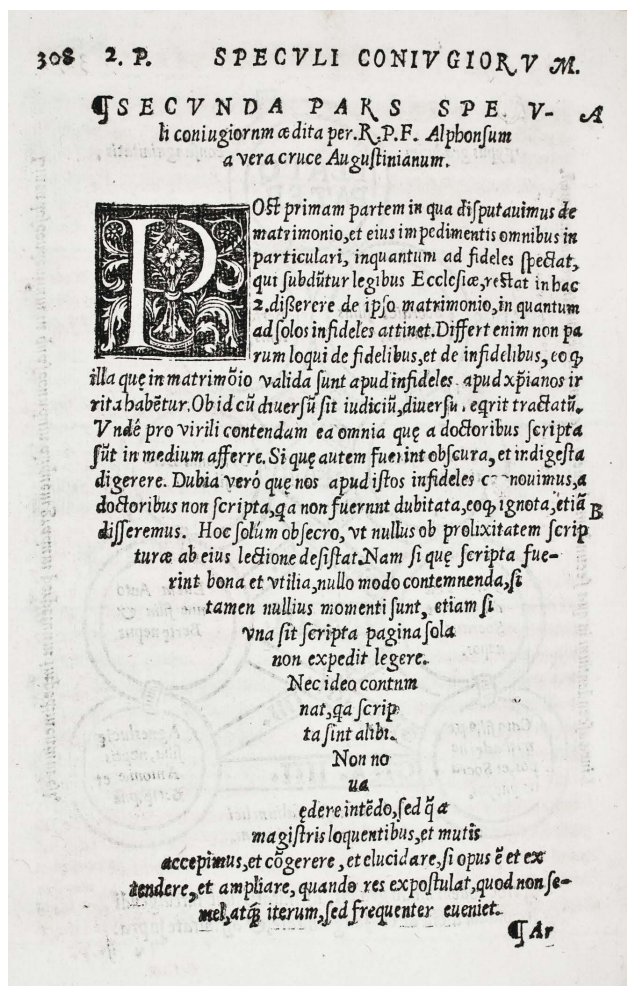 308 2. P. SPECVLI CONIVGIORV M.
¶SECVNDA PARS SPE V- A
li coniugiornm ædita per.R.P.F. Alphonsum
a vera cruce Augustinianum.
POst primam partem in qua disputauimus de
matrimonio,et eius impedimentis omnibus in
particulari, inquantum ad fideles spectat,
qui subdūtur legibus Ecclesiæ,restat in hac
2.disserere de ipso matrimonio,in quantum
ad solos infideles attinet.Differt enim non pa
rum loqui de fidelibus,et de infidelibus, eo q,
illa quę in matrimōio valida sunt apud infideles apud xp̄ianos ir
rita habētur.Ob id cū diuersū sit iudiciū,diuersū eqrit tractatū.
Vndé pro virili contendam ea omnia quę a doctoribus scripta
sūt in medium afferre. Si quę autem fuerint obscura, et indigesta
digerere. Dubia veró quę nos apud istos infideles c nouimus,a
doctoribus non scripta,qa non fuernnt dubitata,eoq, ignota, etiā B
disseremus. Hoc solùm obsecro, vt nullus ob prolixitatem scrip
turæ ab eius lectione desistat.Nam si quę scripta fue-
rint bona et vtilia,nullo modo contemnenda,si
tamen nullius momenti sunt, etiam si
vna sit scripta pagina sola
non expedit legere.
Nec ideo contnm
nat,qa scrip
ta sint alibi.
Non no
ua
ędere intēdo,sed q̄ a
magistris loquentibus,et mutis
accepimus,et cōgerere, et elucidare,si opus ē et ex
tendere,et ampliare, quando res expostulat,quod non se-
mel,atq̄ iterum,sed frequenter eueniet.
¶Ar